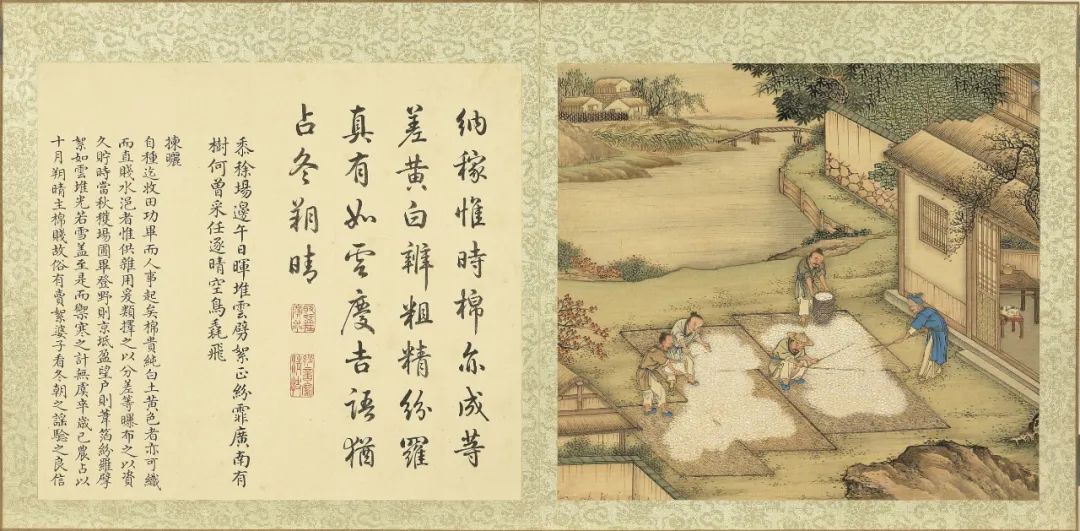 納稼惟時棉亦成等
差黃白辨粗精紛羅
真有如雲慶吉語猶
占冬朔晴
黍稌場邊午日暉堆雲劈絮正紛霏廣南有
樹何曾采任逐晴空鳥毳飛
揀曬
自種迄收田功畢而人事起矣棉貴純白土黃色者亦可織
而直賤水浥者惟供雜用爰類擇之以分差等曝布之以資
久貯時當秋穫場圃畢登野則京坻盈望戶則葦箔紛羅擘
絮如雲堆光若雪蓋至是而禦寒之計無虞卒歲已農占以
十月朔晴主棉賤故俗有賣絮婆子看冬朝之謠驗之良信